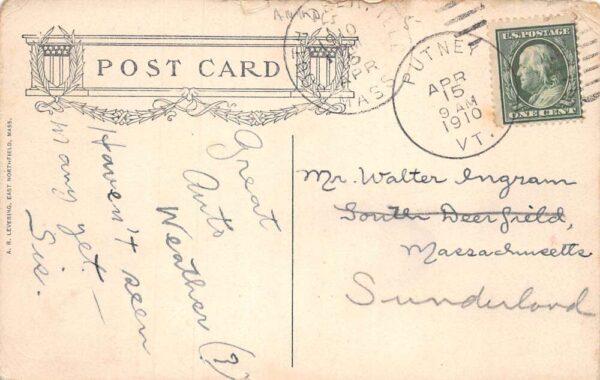 POST CARD
A. R. LEVERING, EAST NORTHFIELD, MASS.
Great
Auto
Weather (?)
Haven't seen
many yet. —
Sis.
1910
APR
MASS
PUTNEY
APR
15
9 AM
1910
VT.
U.S. POSTAGE
ONE CENT
Mr. Walter Ingram
South Deerfield,
Massachusetts
Sunderland